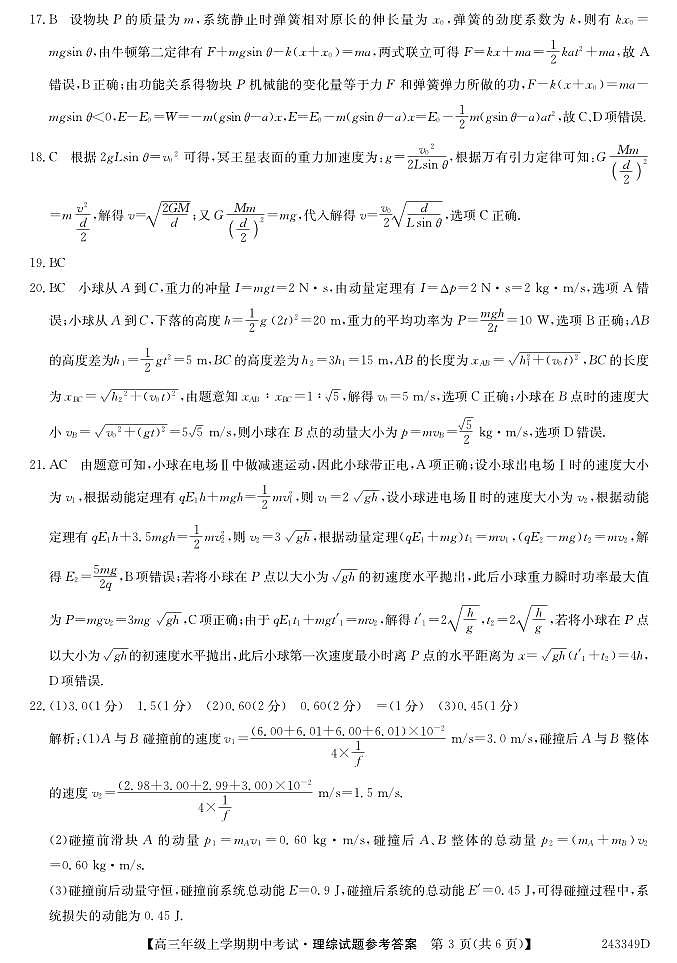 17. B 设物块 P 的质量为 m,系统静止时弹簧相对原长的伸长量为 x₀,弹簧的劲度系数为 k,则有 kx₀=
mgsin θ,由牛顿第二定律有 F+mgsin θ-k(x+x₀)=ma,两式联立可得 F=kx+ma=\frac{1}{2}kat²+ma,故 A
错误,B 正确;由功能关系得物块 P 机械能的变化量等于力 F 和弹簧弹力所做的功,F-k(x+x₀)=ma-
mgsin θ<0,E-E₀=W=-m(gsin θ-a)x,E=E₀-m(gsin θ-a)x=E₀-\frac{1}{2}m(gsin θ-a)at²,故 C、D 项错误.
18. C 根据 2gLsin θ=v₀² 可得,冥王星表面的重力加速度为:g=\frac{v₀²}{2Lsin θ},根据万有引力定律可知:G\frac{Mm}{(\frac{d}{2})²}
=m\frac{v²}{\frac{d}{2}},解得 v=\sqrt{\frac{2GM}{d}};又 G\frac{Mm}{(\frac{d}{2})²}=mg,代入解得 v=\frac{v₀}{2}\sqrt{\frac{d}{Lsin θ}},选项 C 正确.
19. BC
20. BC 小球从 A 到 C,重力的冲量 I=mgt=2 N·s,由动量定理有 I=Δp=2 N·s=2 kg·m/s,选项 A 错
误;小球从 A 到 C,下落的高度 h=\frac{1}{2}g(2t)²=20 m,重力的平均功率为 P=\frac{mgh}{2t}=10 W,选项 B 正确;AB
的高度差为h₁=\frac{1}{2}gt²=5 m,BC 的高度差为 h₂=3h₁=15 m,AB 的长度为 x_{AB}=\sqrt{h₁²+(v₀t)²},BC 的长度
为 x_{BC}=\sqrt{h₂²+(v₀t)²},由题意知 x_{AB}∶x_{BC}=1∶√5,解得 v₀=5 m/s,选项 C 正确;小球在 B 点时的速度大
小 v_B=\sqrt{v₀²+(gt)²}=5√5 m/s,则小球在 B 点的动量大小为 p=mv_B=\frac{√5}{2} kg·m/s,选项 D 错误.
21. AC 由题意可知,小球在电场Ⅱ中做减速运动,因此小球带正电,A 项正确;设小球出电场Ⅰ时的速度大小
为 v₁,根据动能定理有 qE₁h+mgh=\frac{1}{2}mv₁²,则 v₁=2\sqrt{gh},设小球进电场Ⅱ时的速度大小为 v₂,根据动能
定理有 qE₁h+3.5mgh=\frac{1}{2}mv₂²,则 v₂=3\sqrt{gh},根据动量定理(qE₁+mg)t₁=mv₁,(qE₂-mg)t₂=mv₂,解
得 E₂=\frac{5mg}{2q},B 项错误;若将小球在 P 点以大小为\sqrt{gh}的初速度水平抛出,此后小球重力瞬时功率最大值
为 P=mgv₂=3mg\sqrt{gh},C 项正确;由于 qE₁t₁+mgt′₁=mv₂,解得 t′₁=2\sqrt{\frac{h}{g}},t₂=2\sqrt{\frac{h}{g}},若将小球在 P 点
以大小为\sqrt{gh}的初速度水平抛出,此后小球第一次速度最小时离 P 点的水平距离为 x=\sqrt{gh}(t′₁+t₂)=4h,
D 项错误.
22. (1)3.0(1 分) 1.5(1 分) (2)0.60(2 分) 0.60(2 分) =(1 分) (3)0.45(1 分)
解析:(1)A 与 B 碰撞前的速度 v₁=\frac{(6.00+6.01+6.00+6.01)×10⁻²}{4×\frac{1}{f}} m/s=3.0 m/s,碰撞后 A 与 B 整体
的速度 v₂=\frac{(2.98+3.00+2.99+3.00)×10⁻²}{4×\frac{1}{f}} m/s=1.5 m/s.
(2)碰撞前滑块 A 的动量 p₁=m_Av₁=0.60 kg·m/s,碰撞后 A、B 整体的总动量 p₂=(m_A+m_B)v₂
=0.60 kg·m/s.
(3)碰撞前后动量守恒,碰撞前系统总动能 E=0.9 J,碰撞后系统的总动能 E′=0.45 J,可得碰撞过程中,系
统损失的动能为 0.45 J.
【高三年级上学期期中考试·理综试题参考答案 第 3 页(共 6 页)】 243349D